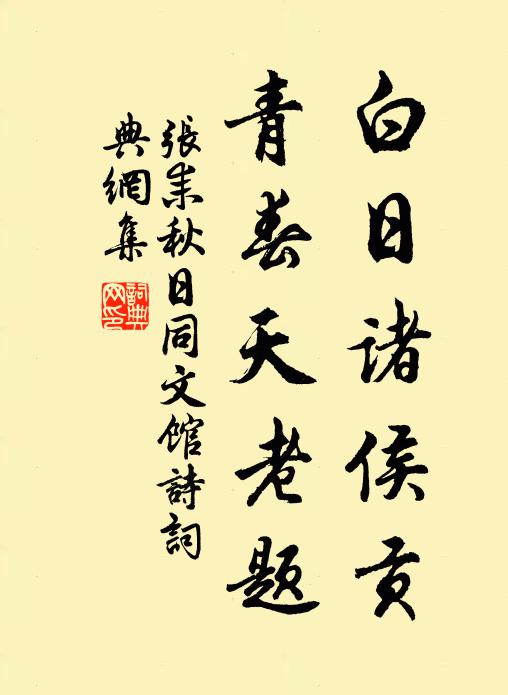 白日诸侯贡
青春天老题
張耒秋日同文館詩詞
典網集
詞典
网印